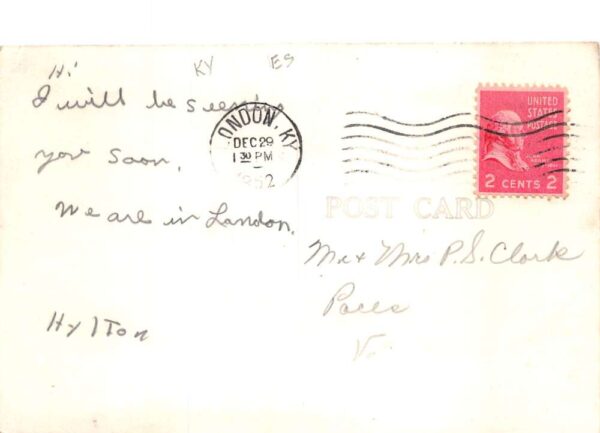 KY ES
Hi
I will be seeing
you soon.
We are in London.
Hylton
LONDON, KY.
DEC 29
1 30 PM
1952
UNITED
STATES
POSTAGE
2 CENTS 2
POST CARD
Mr & Mrs P. S. Clark
Va.